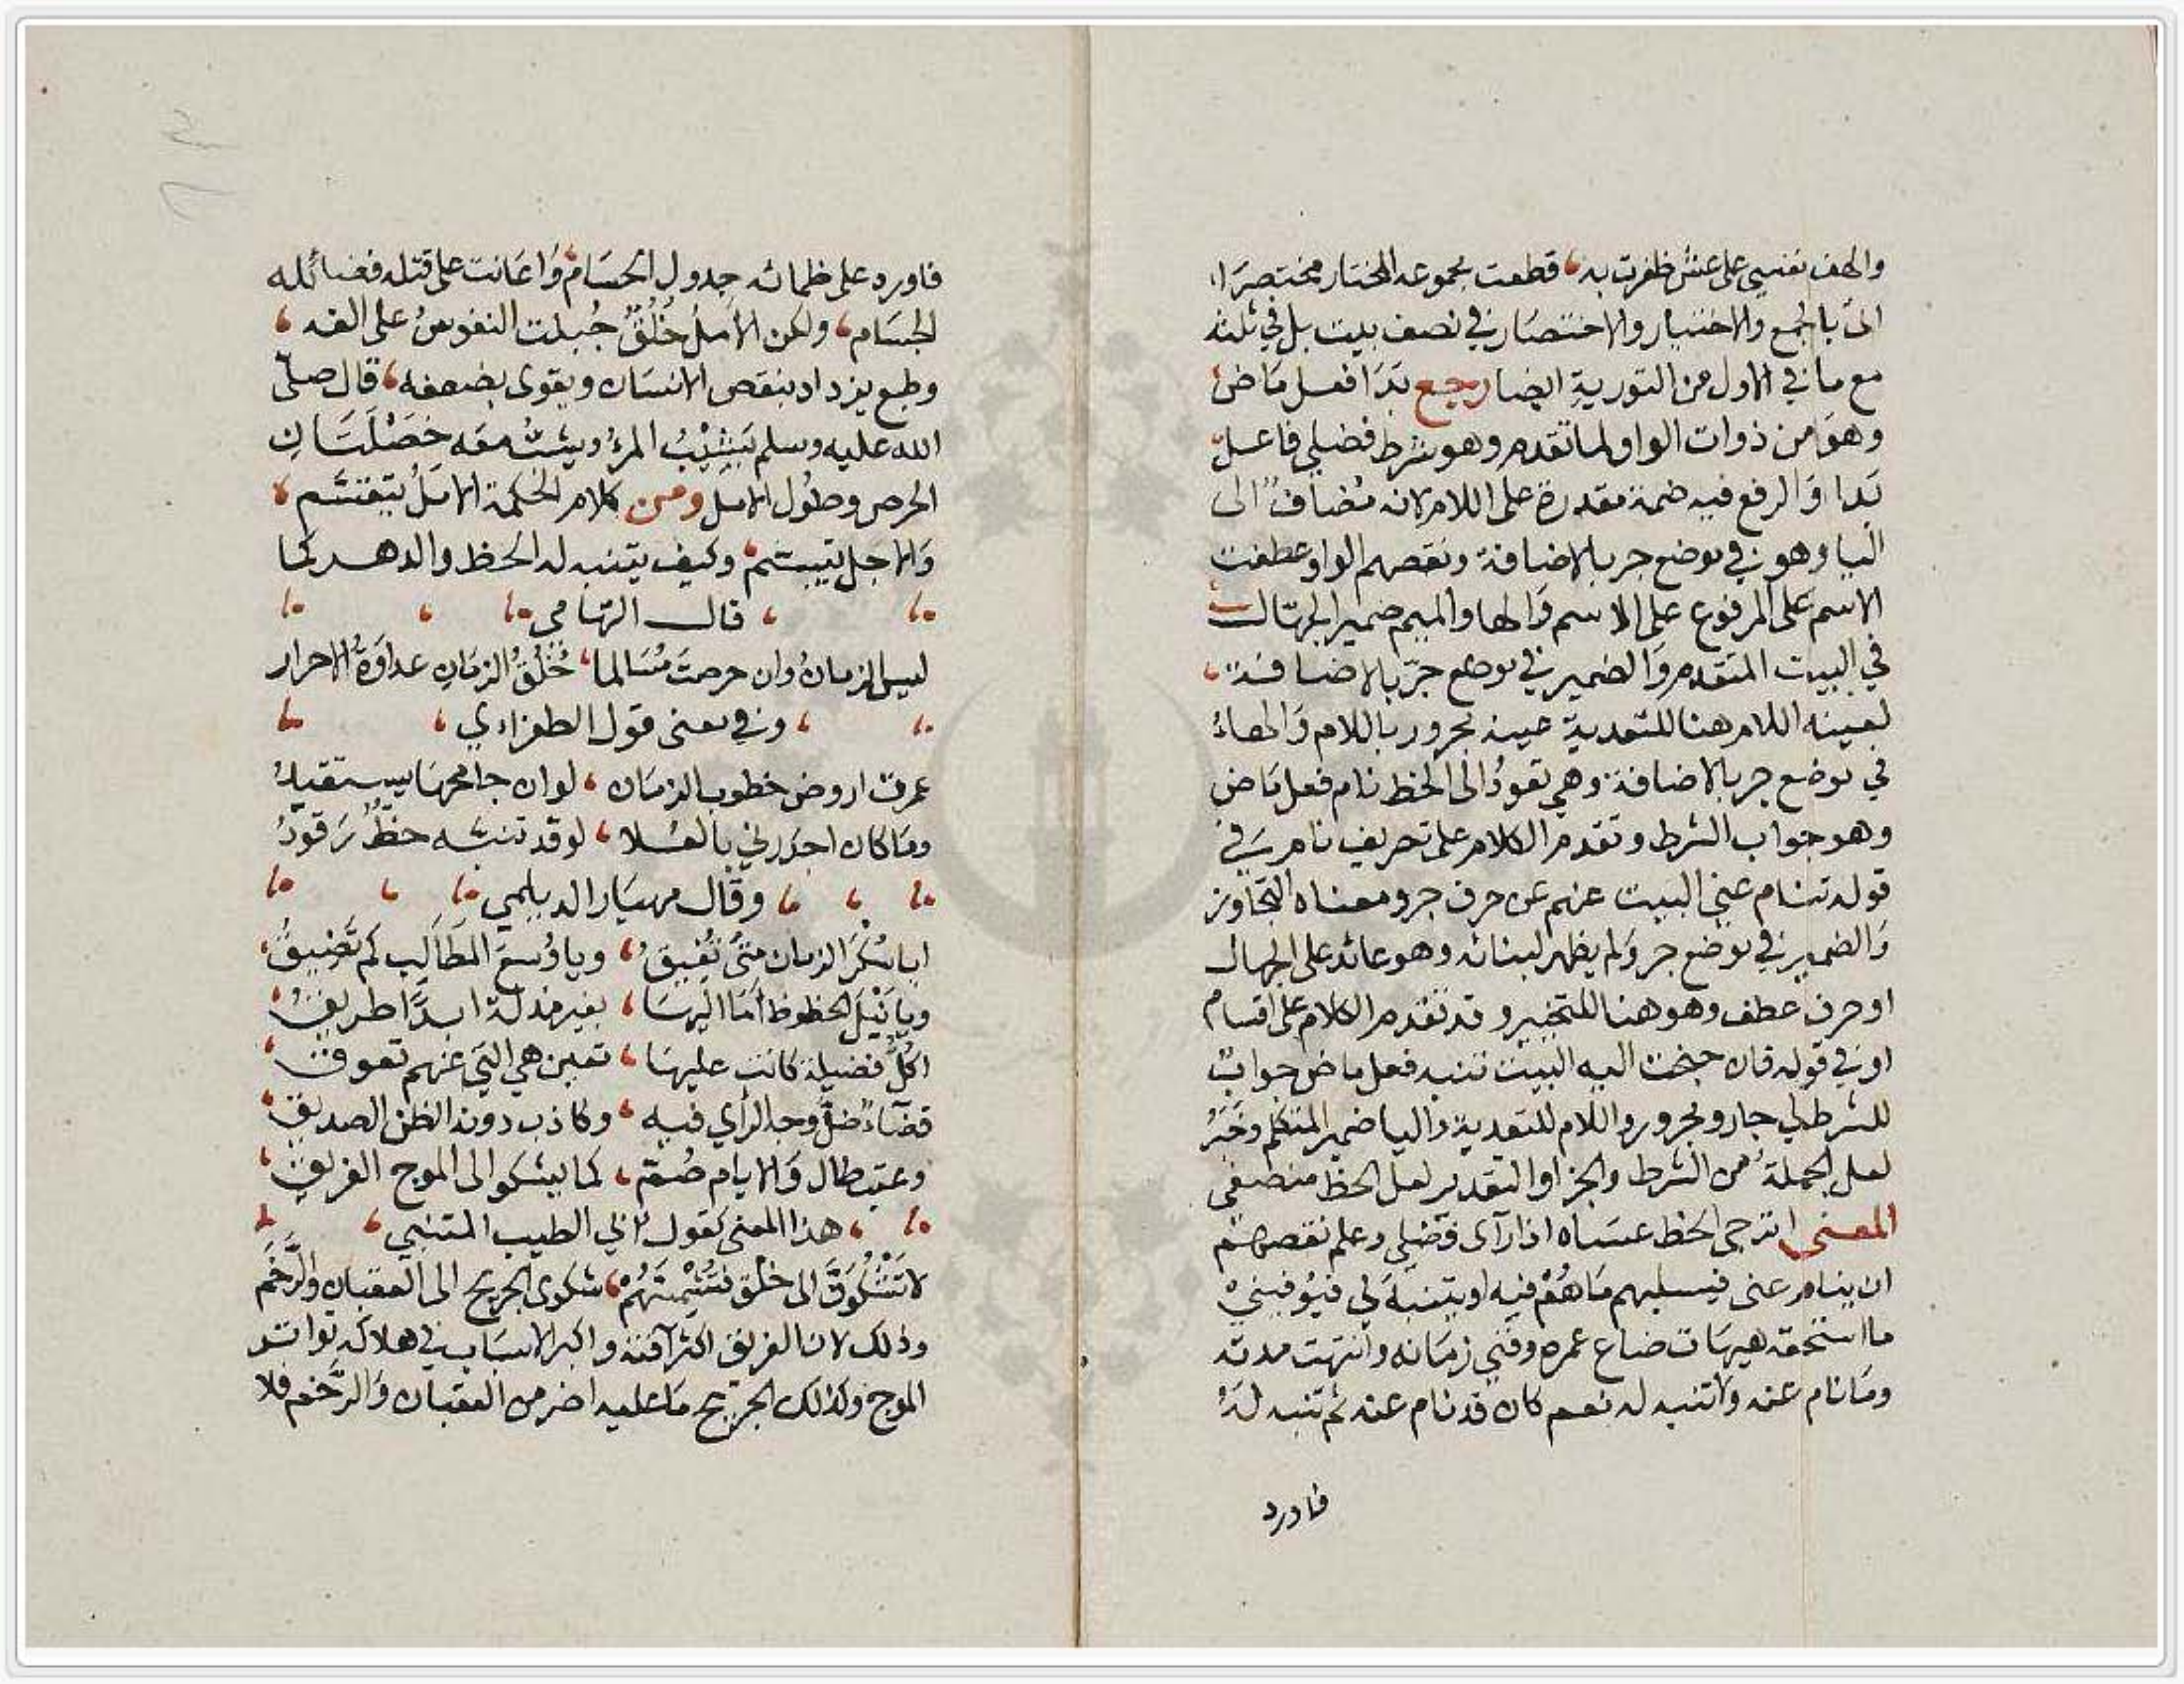 والهف نفسي على عيش ظفرت به قطعت مجموعه المختار مختصرا
اتى بالجمع والاختيار والاختصار في نصف بيت بل في ثلثه
مع ما في الاول من التورية ايضا رجع بدا فعل ماض
وهو من ذوات الواو لما تقدم وهو شرط فضلي فاعل
بدا والرفع فيه ضمة مقدرة على اللام لانه مضاف الى
الياء وهو في موضع جر بالاضافة ونقصهم الواو عطفت
الاسم على المرفوع على الاسم والها والميم ضمير الجهال
في البيت المتقدم والضمير في موضع جر بالاضافة
لعينه اللام هنا للتعدية عينه مجرور باللام والهاء
في موضع جر بالاضافة وهي تعود الى الحظ نام فعل ماض
وهو جواب الشرط وتقدم الكلام على تصريف نام في
قوله تنام عيني البيت عنهم عن حرف جر ومعناه التجاوز
والضمير في موضع جر ولم يظهر لبنائه وهو عائد على الجهال
او حرف عطف وهو هنا للتخيير وقد تقدم الكلام على اقسام
او في قوله فان جنحت اليه البيت تنبه فعل ماض جواب
للشرط لي جار ومجرور واللام للتعدية والياء ضمير المتكلم وخبر
لعل الجملة من الشرط والجزا والتقدير لعل الحظ
المعنى اترجى الحظ عساه اذا رآى فضلي وعلم نقصهم
ان ينام عنى فيسليهم ما هم فيه او يتنبه لي فيوفيني
ما استحقه هيهات ضاع عمره وفني زمانه وانتهت مدته
وما نام عنه ولا تنبه له نعم كان قد نام عنه ثم تنبه له
فاورد
فاورد على ظمائه جدول الحسام واعانت على قتله فضائله
الجسام ولكن الامل خلق جبلت النفوس على الفه
وطبع يزداد بنقص الانسان ويقوى بضعفه قال صلى
الله عليه وسلم يشيب المرؤ ويشب معه خصلتان
الحرص وطول الامل ومن كلام الحكمة الامل
والاجل يتبسم وكيف يتنبه له الحظ والدهر كما
قال التهامي
ليس الزمان وان حرصت مسالما خلق الزمان عداوة الاحرار
وفي معنى قول الطغراءي
عرفت اروض خطوب الزمان لو ان جامحها يستقيد
وما كان اجدرني بالعلا لو قد تنبه حظ رقود
وقال مهيار الديلمي
ايا سكر الزمان متى تفيق ويا وسع المطالب كم تضيق
ويا نيل الحظوظ أما اليها بغير مذلة ابدا طريق
اكل فضيلة كانت عليها تعين هي التي عنهم تعوق
قضاء ضل وجه الرأي فيه وكاذب دونه الظن الصديق
وعتب طال والايام صم كما يشكو الى الموج الغريق
هذا المعنى كقول ابي الطيب المتنبي
لا تشكون الى خلق فتشمتهم شكوى الجريح الى العقبان والرخم
وذلك لان الغريق اكثر آفته واكبر الاسباب في هلاكه تواتر
الموج وكذلك الجريح ما عليه اضر من العقبان والرخم فلا